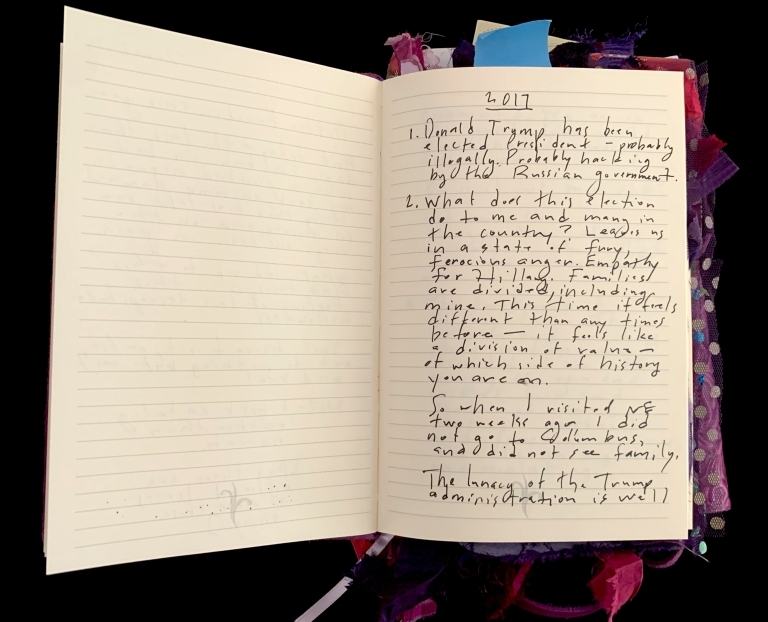 2017
1. Donald Trump has been
elected President - probably
illegally. Probably hacking
by the Russian government.
2. What does this election
do to me and many in
the country? Leaves us
in a state of fury,
ferocious anger. Empathy
for Hillary. Families
are divided, including
mine. This time it feels
different than any times
before — it feels like
a division of value —
of which side of history
you are on.
So when I visited NE
two weeks ago I did
not go to Columbus,
and did not see family.
The lunacy of the Trump
administration is well